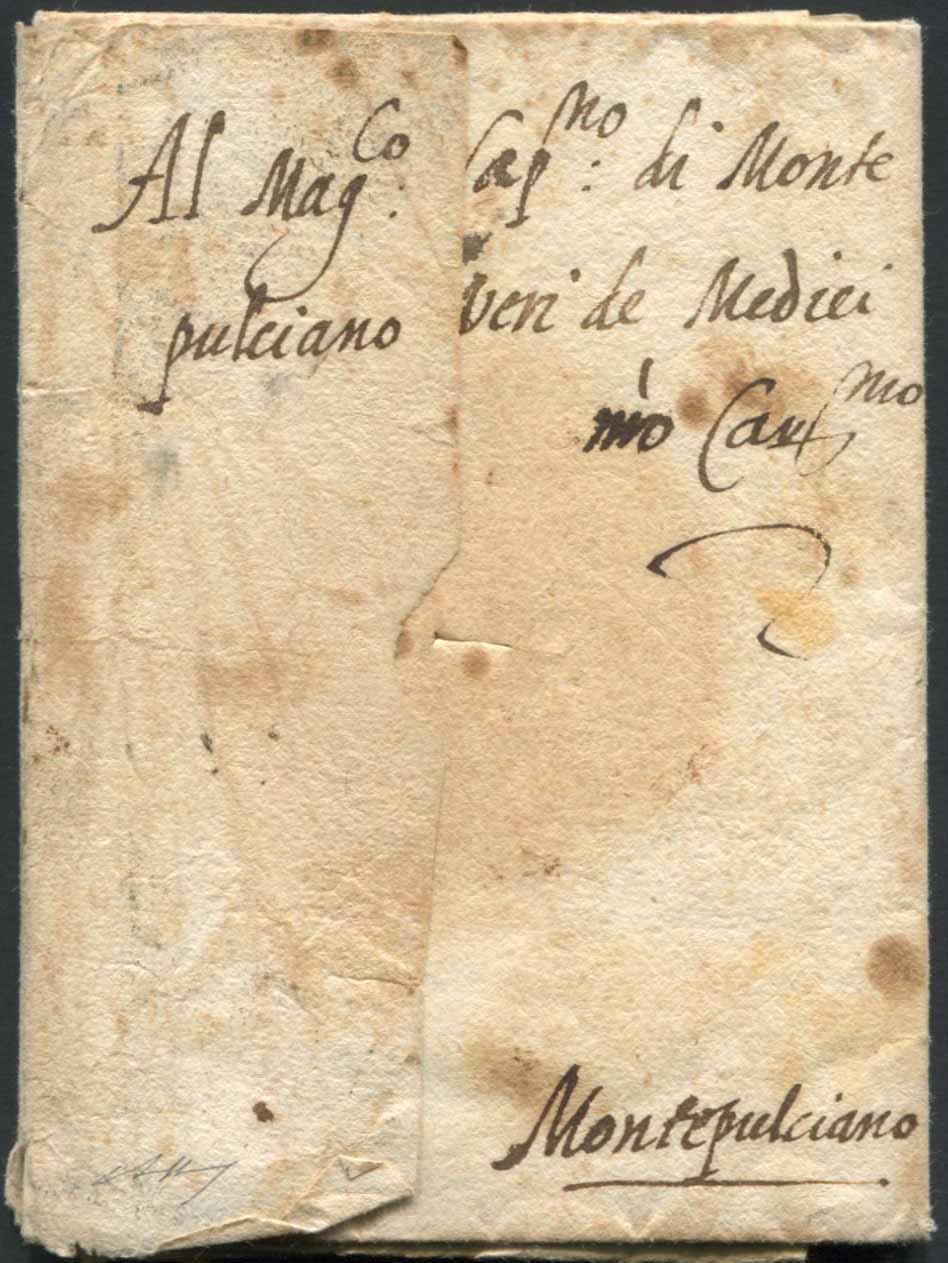 Al Mag.co Cap.no di Monte
pulciano Veri de Medici
mio Car.mo
Montepulciano